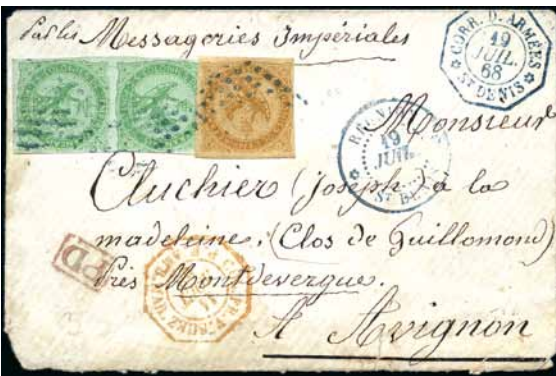 Par les Messageries Impériales
CORR. D. ARMÉES
19
JUIL.
68
ST DENIS
Monsieur
RÉUNION
19
JUIL.
ST DENIS
Cluchier (Joseph) à la
madeleine, (Clos de Guillomond)
PD
Près Montdevergue.
À Avignon